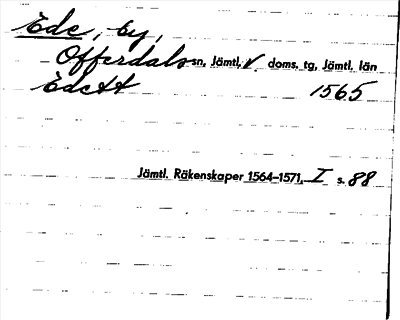 Ede, by,
Offerdals sn, Jämtl. V. doms. tg, Jämtl. län
Edett 1565
Jämtl. Räkenskaper 1564–1571, I s. 88